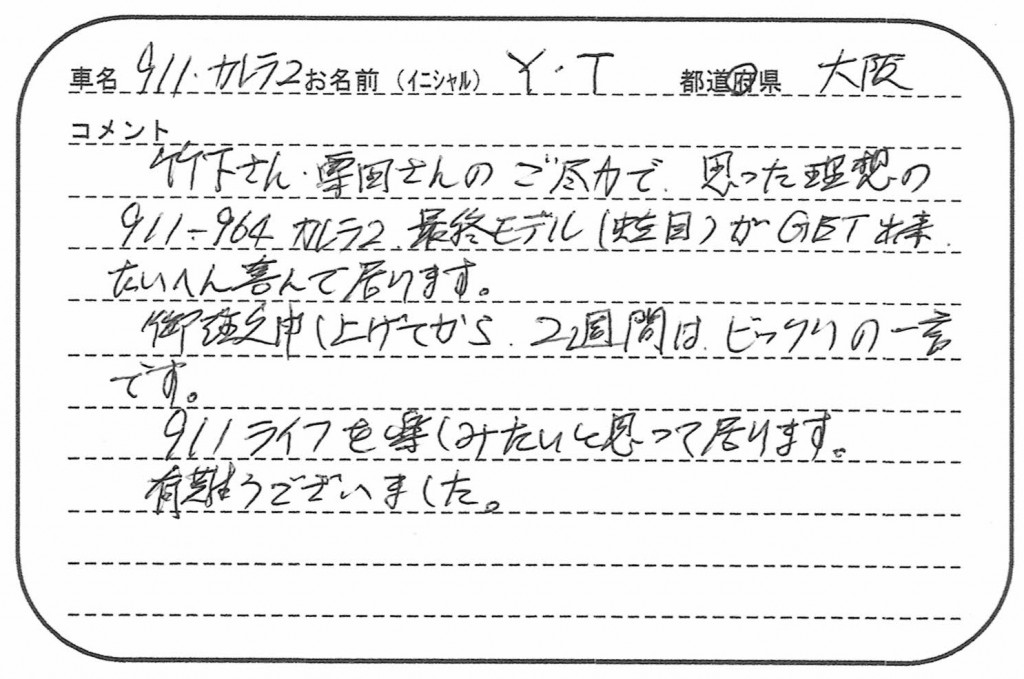 車名 911・カレラ2 お名前 (イニシャル) Y・T 都道府県 大阪
コメント
竹下さん・栗田さんの ご尽力で、思った理想の
911-964 カレラ2 最終モデル(虫色目)が GET 出来
たいへん喜んで居ります。
御注文申し上げてから、2週間は ビックリの一言
です。
911ライフを楽しみたいと思って居ります。
有難うございました。